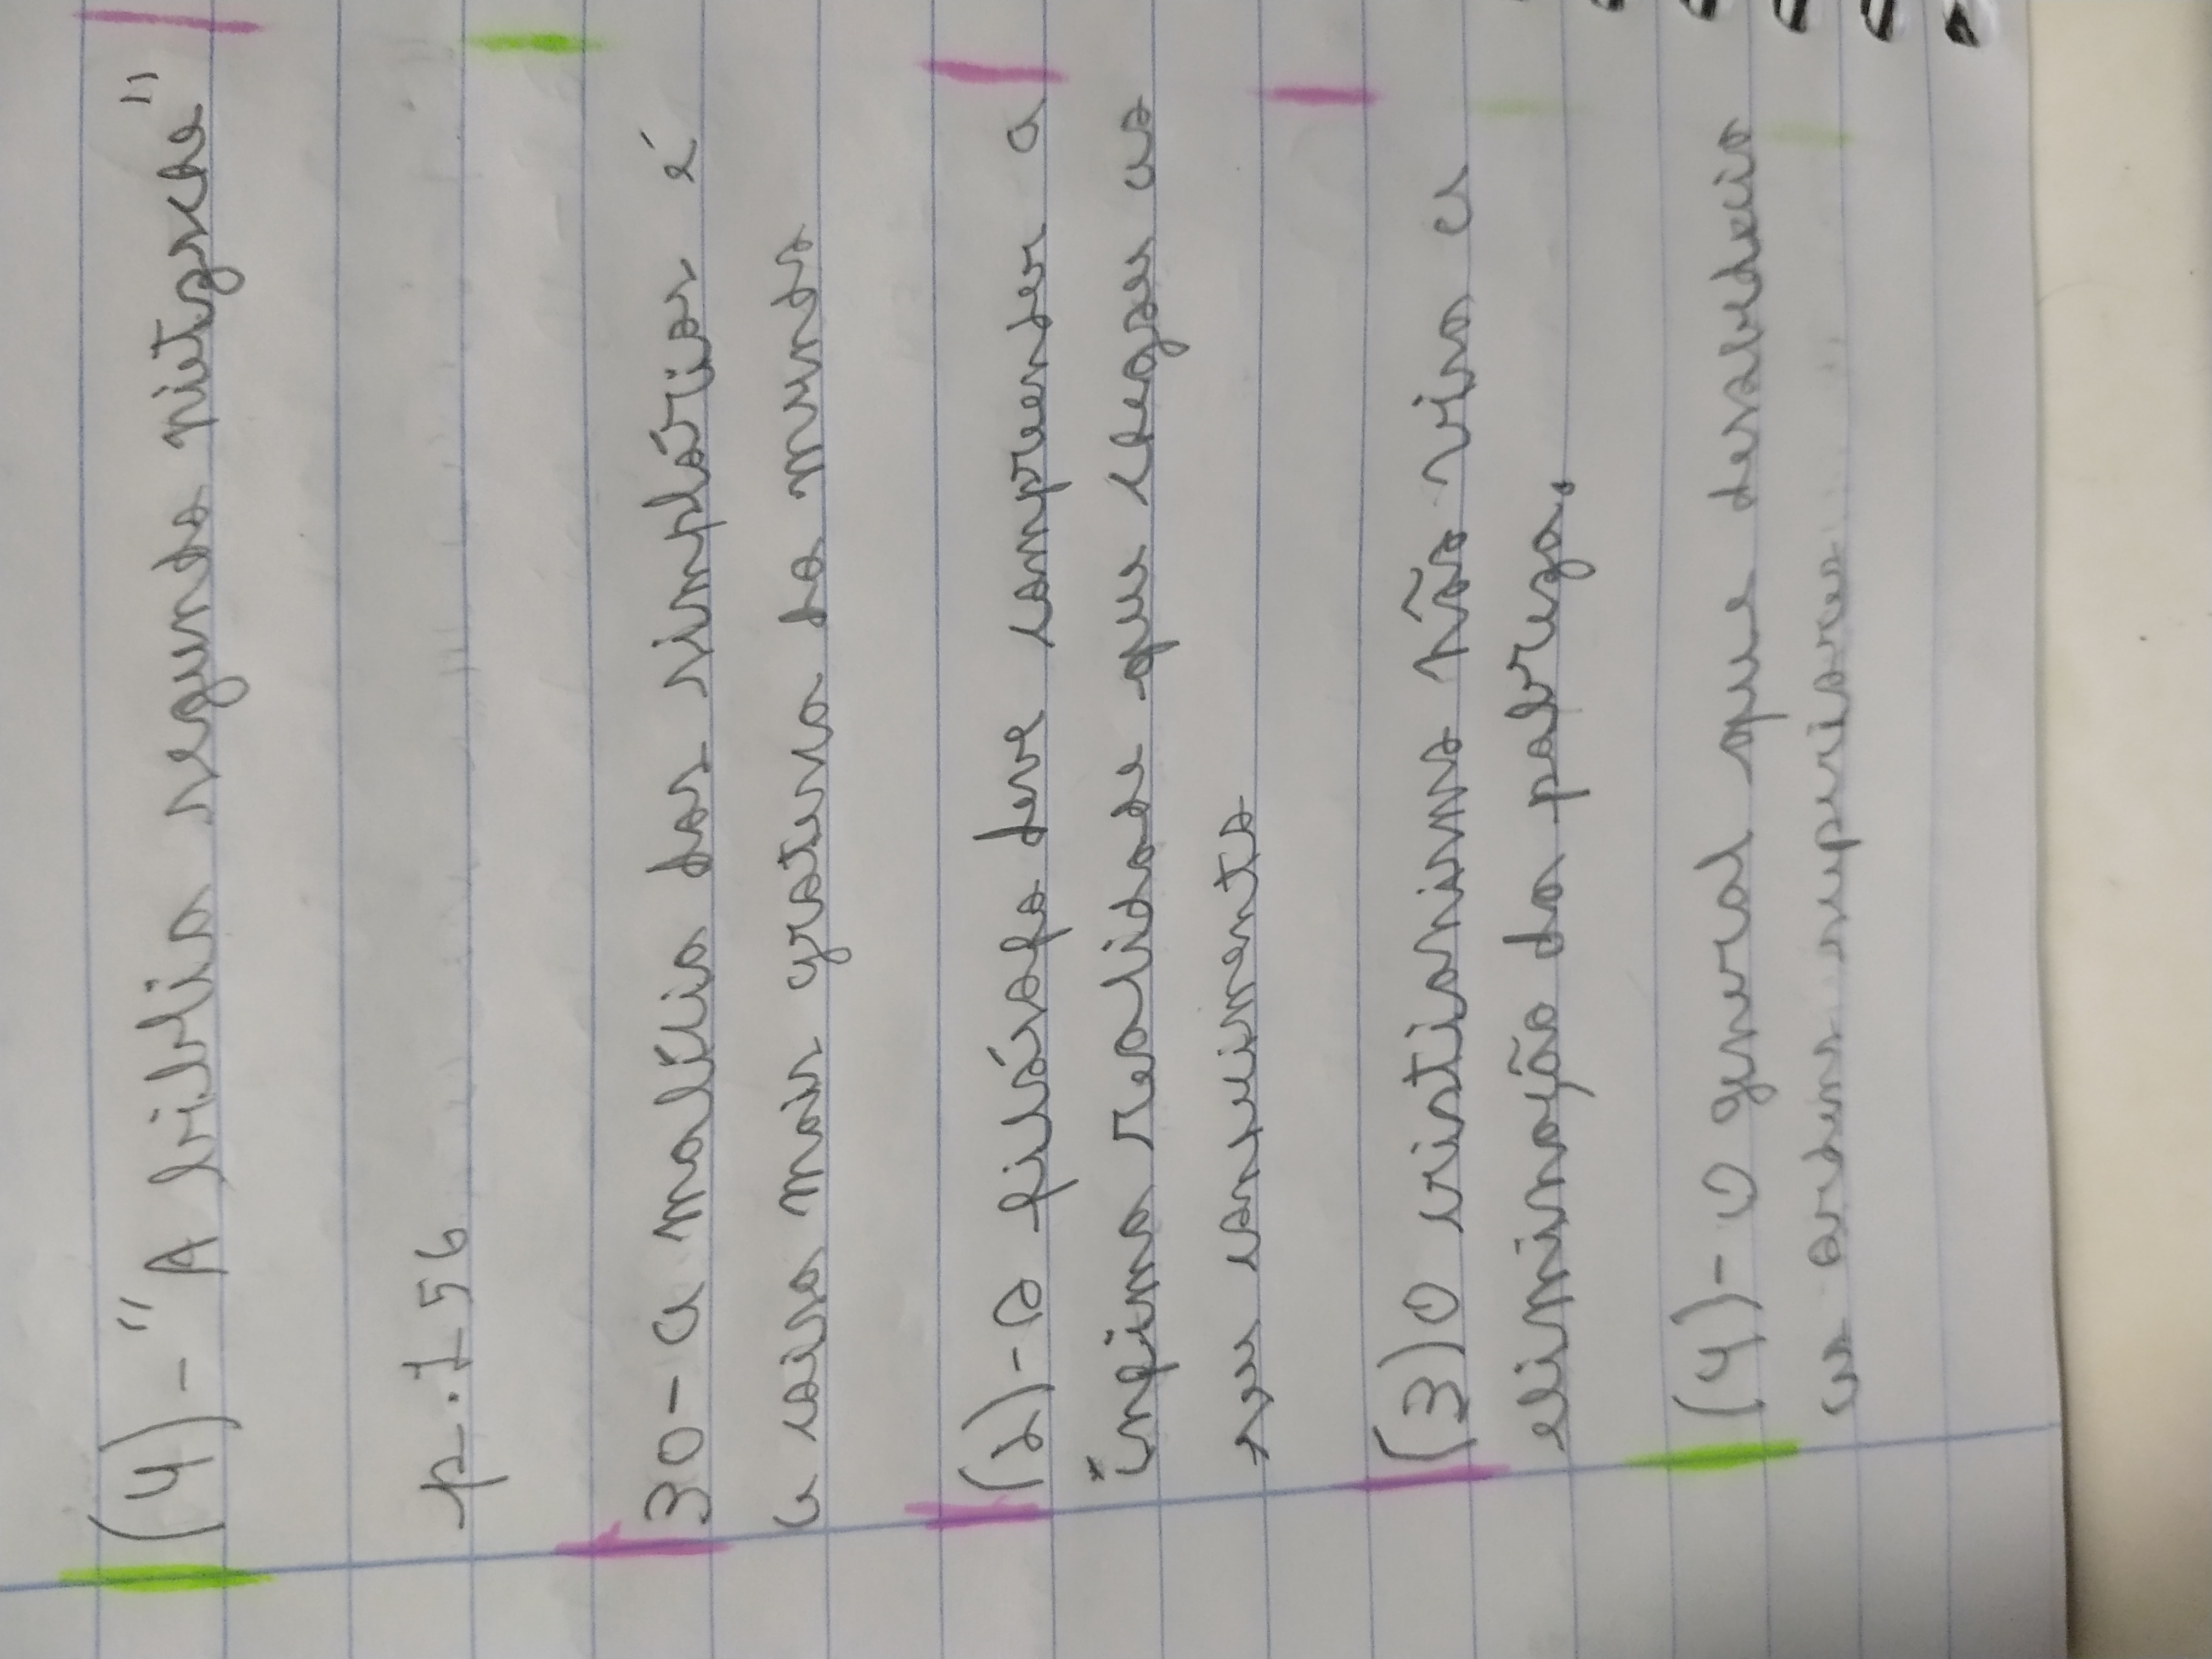 (4)- "A bíblia segundo nietzsche"
p. 156
30- a malícia dos simplórios é
a coisa mais grotesca do mundo
(2)- O filósofo deve compreender a
ínfima realidade que chegou ao
seu conhecimento
(3) O cristianismo não visa a
eliminação da pobreza.
(4)- O general que desobedecia
as ordens superiores